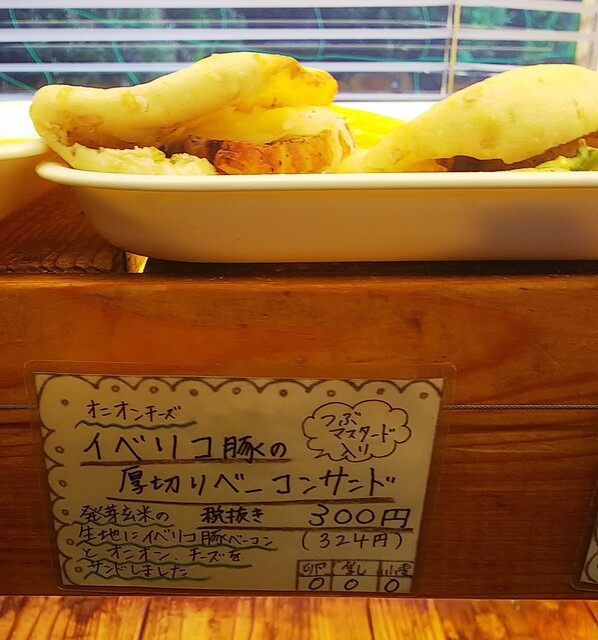 オニオンチーズ
イベリコ豚の
厚切りベーコンサンド
つぶ
マスタード
入り
発芽玄米の
生地にイベリコ豚ベーコン
とオニオン、チーズを
サンドしました
税抜き 300円
(324円)
卵 乳 小麦
○ ○ ○